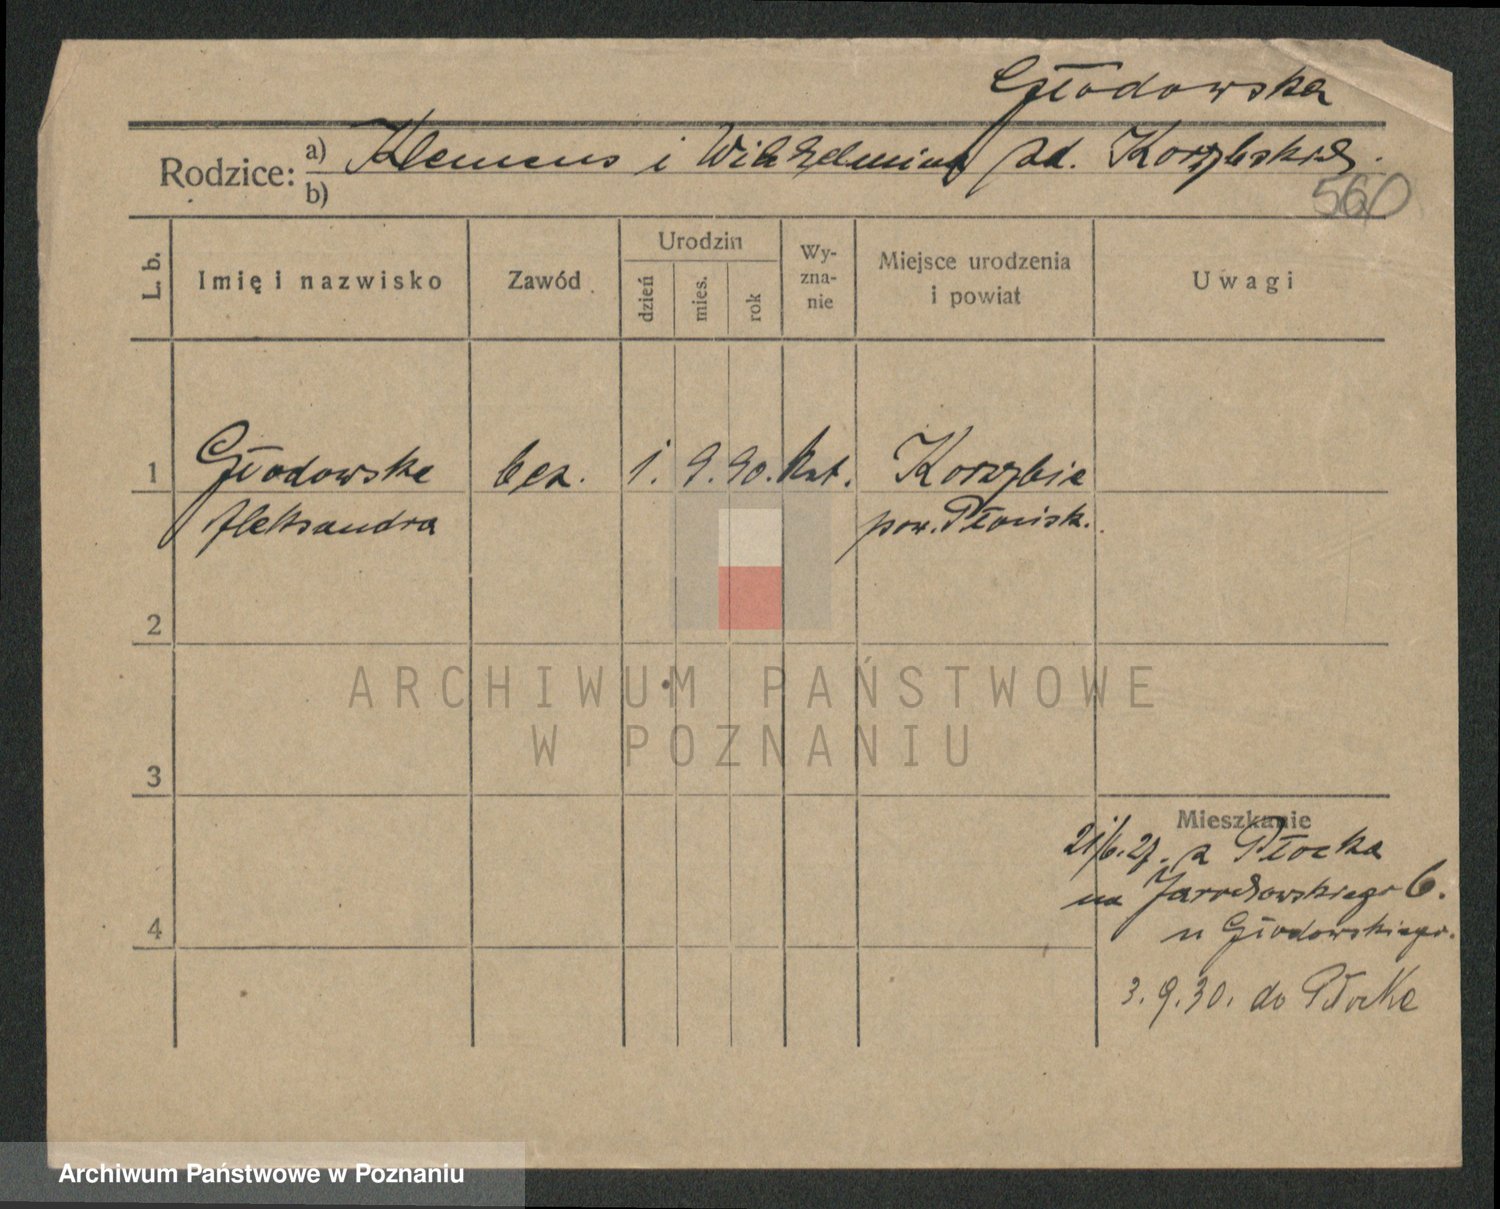 Głodowska
Rodzice: a) Klemens i Wilhelmina zd. Korzybskie.
b)
560
L. b.
Imię i nazwisko
Zawód
Urodzin
dzień
mies.
rok
Wy-
zna-
nie
Miejsce urodzenia
i powiat
Uwagi
1 Głodowska bez. 1. 9. 90. kat. Korzybie
Aleksandra pow. Płońsk.
2
3
4
Mieszkanie
21/6.27. z Płocka
na Jarochowskiego 6.
u Głodowskiego.
3.9.30. do Płocka
ARCHIWUM PAŃSTWOWE
W POZNANIU
Archiwum Państwowe w Poznaniu